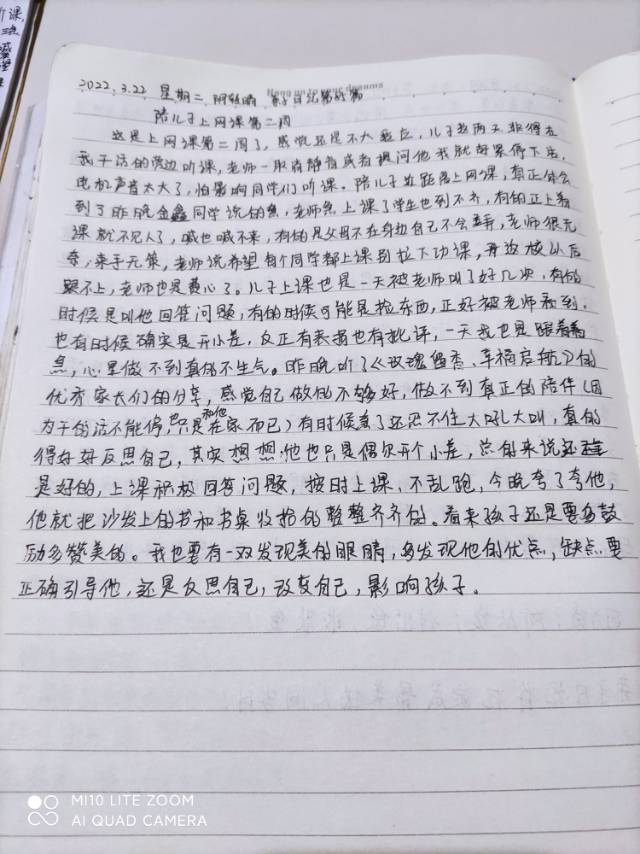 2022.3.22 星期二 阴转晴 亲子日记第 篇
dreams
陪儿子上网课第二周
这是上网课第二周了,感觉还是不大适应,儿子这两天非得在
我干活的旁边听课,老师一取消静音或者提问他我就好紧停下来,
电机声音太大了,怕影响同学们听课。陪儿子近距离上网课,真正体会
到了昨晚金鑫同学说的焦,老师焦上课了学生也到不齐,有的正上着
课就不见人了,喊也喊不来,有的是父母不在身边自己不会弄,老师很无
奈,束手无策,老师说希望每个同学都上课别拉下功课,再返校以后
跟不上,老师也是费心了。儿子上课也是一天被老师叫了好几次,有的
时候是叫他回答问题,有的时候可能是拉东西,正好被老师看到,
也有时候确实是开小差,反正有表扬也有批评,一天我也是跟着着
焦,心里做不到真的不生气。昨晚听了《玫瑰留香、幸福启航》的
优秀家长们的分享,感觉自己做的不够好,做不到真正的陪伴(因
为干的活不能停,也只是和他在家而已)有时候急了还忍不住大吼大叫,真的
得好好反思自己,其实想想:他也只是偶尔开个小差,总的来说还
是好的,上课积极回答问题,按时上课、不乱跑,今晚夸了夸他,
他就把沙发上的书和书桌收拾的整整齐齐的。看来孩子还是要多鼓
励多赞美的。我也要有一双发现美的眼睛,多发现他的优点,缺点要
正确引导他,还是反思自己,改变自己,影响孩子。
MI10 LITE ZOOM
AI QUAD CAMERA